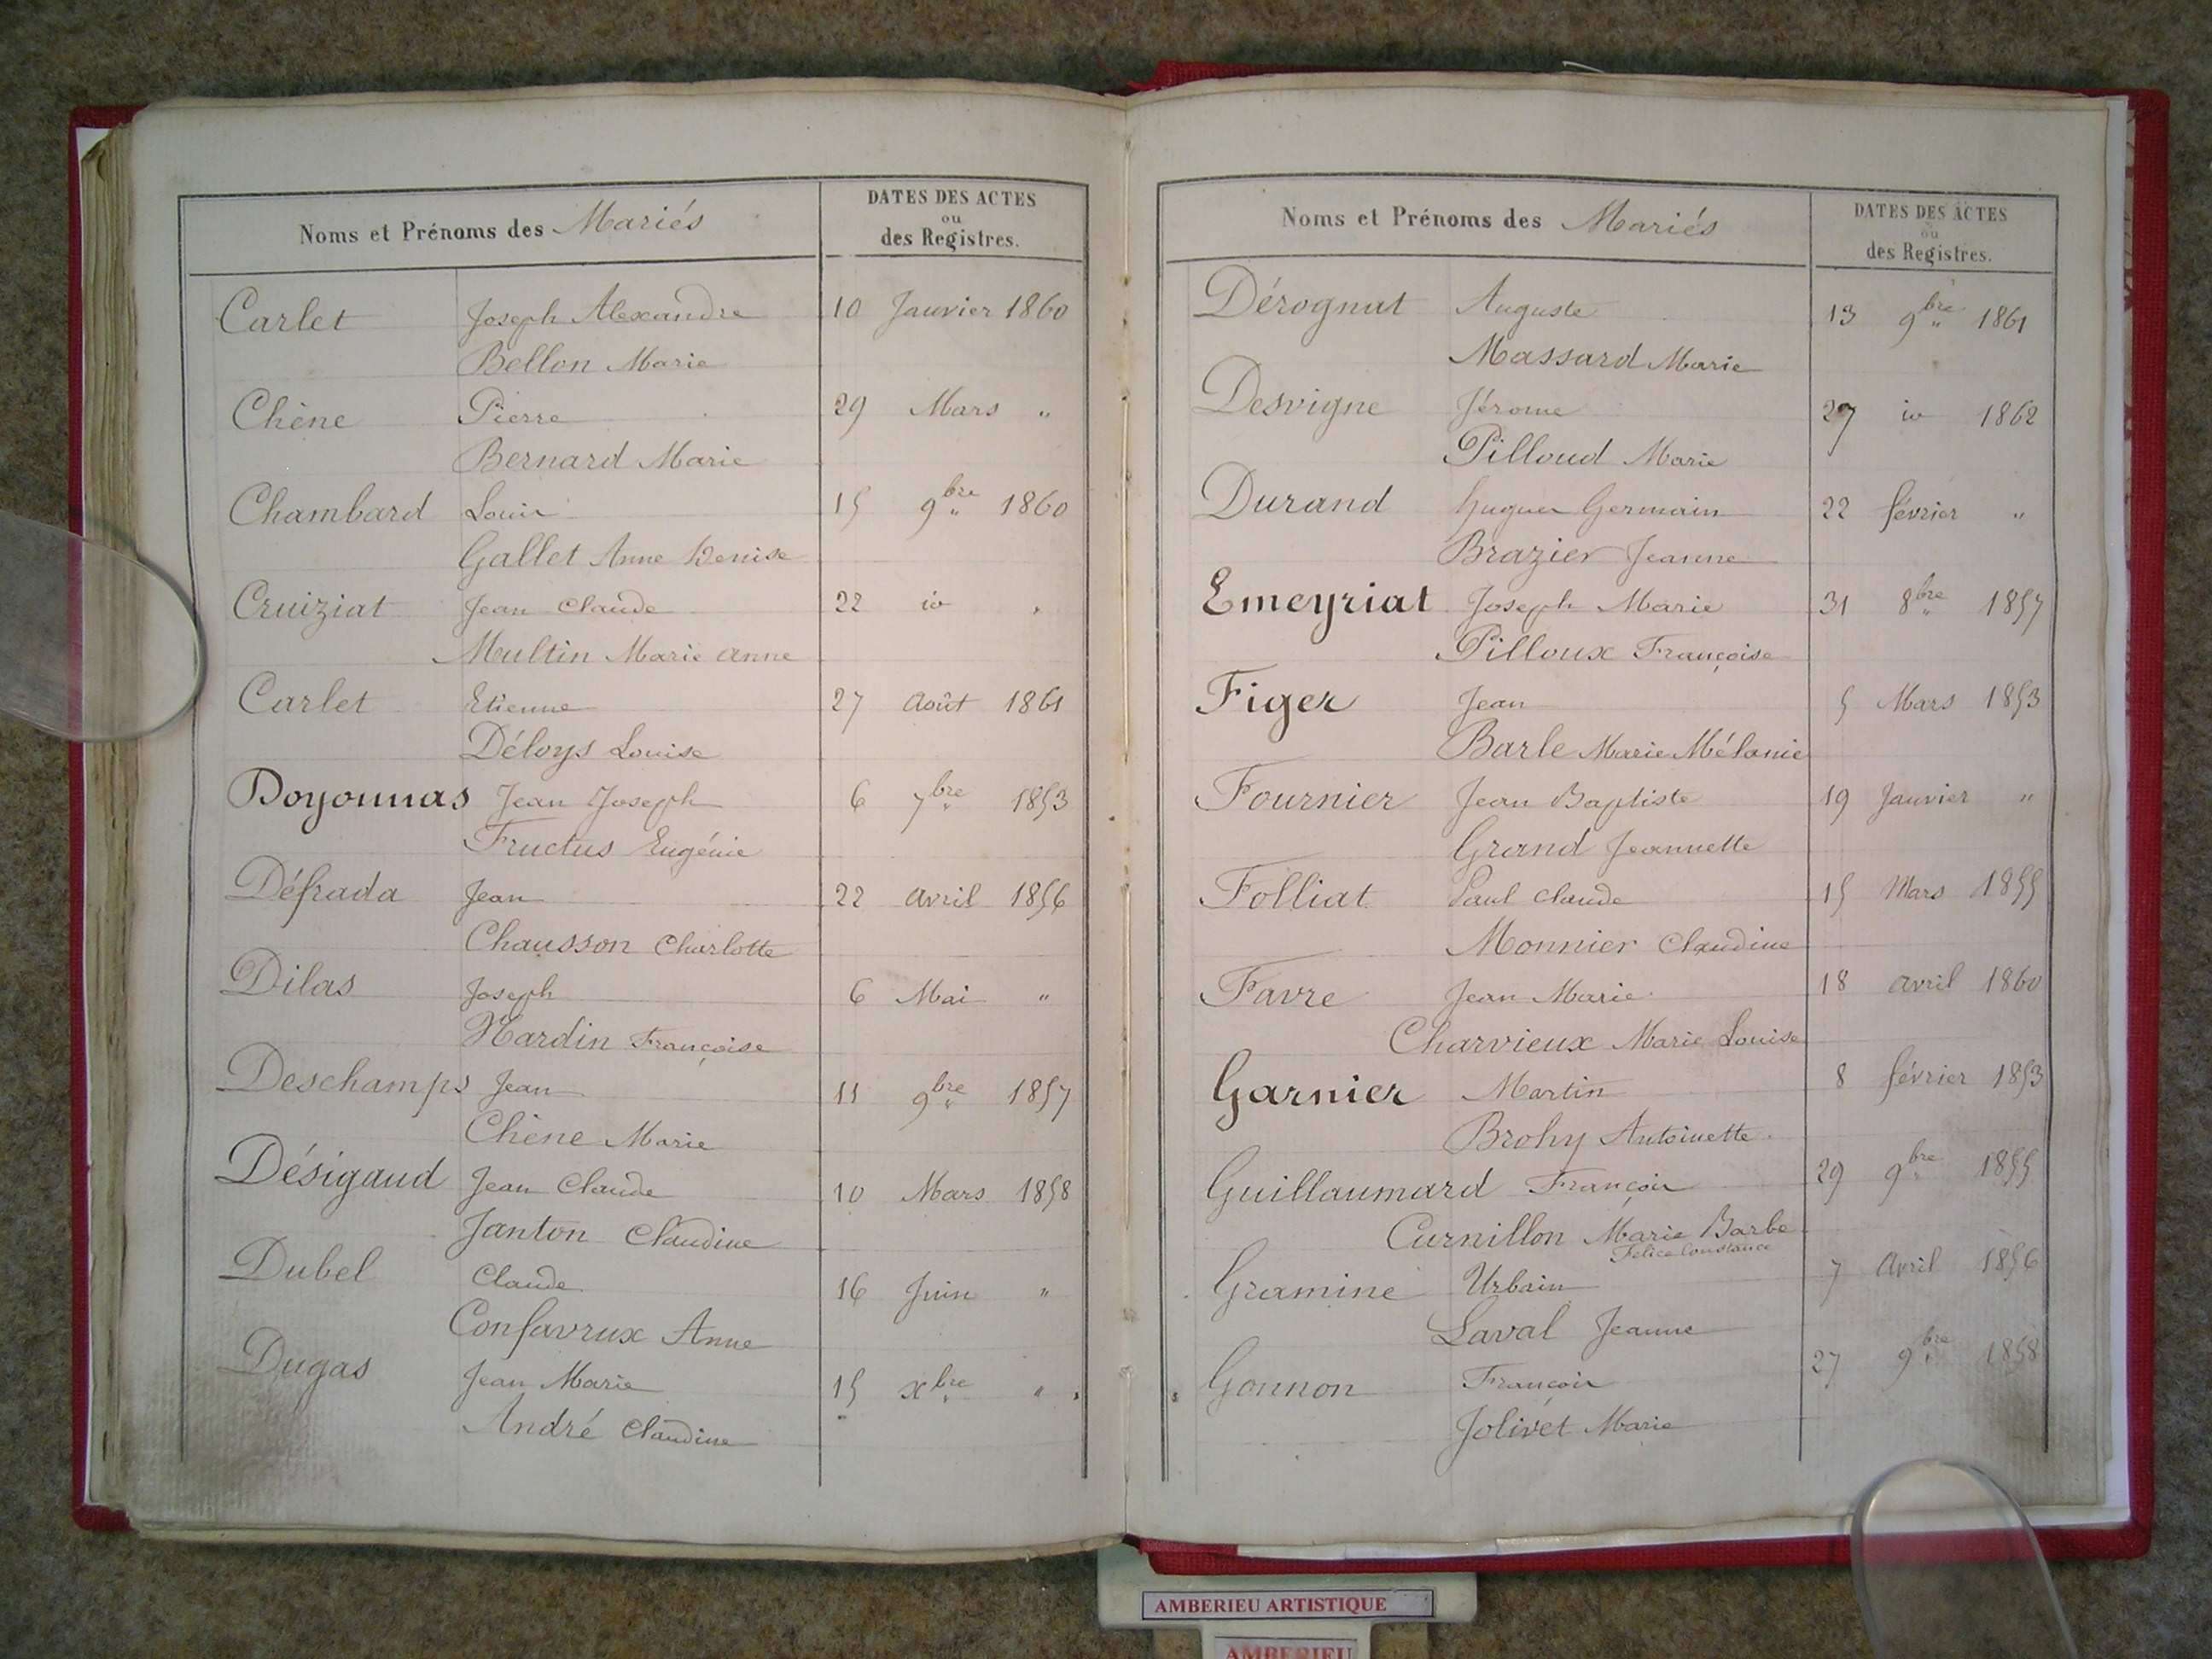 Noms et Prénoms des Mariés
DATES DES ACTES
ou
des Registres.
Carlet Joseph Alexandre 10 Janvier 1860
Bellon Marie
Chêne Pierre 29 Mars "
Bernard Marie
Chambard Louis 15 9bre 1860
Gallet Anne Denise
Cruiziat Jean Claude 22 io "
Multin Marie Anne
Carlet Etienne 27 Août 1861
Déloys Louise
Doyonnas Jean Joseph 6 7bre 1853
Fructus Eugénie
Défrada Jean 22 avril 1856
Chausson Charlotte
Dilas Joseph 6 Mai "
Hardin Françoise
Deschamps Jean 11 9bre 1857
Chêne Marie
Désigaud Jean Claude 10 Mars 1858
Janton Claudine
Dubel Claude 16 Juin "
Confavrux Anne
Dugas Jean Marie 15 xbre "
André Claudine
Noms et Prénoms des Mariés
DATES DES ACTES
ou
des Registres.
Dérognat Auguste 13 9bre 1861
Massard Marie
Desvigne Jérome 27 io 1862
Pilloud Marie
Durand Hugues Germain 22 février "
Brazier Jeanne
Emeyriat Joseph Marie 31 8bre 1857
Pilloux Françoise
Figer Jean 5 Mars 1853
Barle Marie Mélanie
Fournier Jean Baptiste 19 Janvier "
Grand Jeannette
Folliat Paul Claude 15 Mars 1855
Monnier Claudine
Favre Jean Marie 18 avril 1860
Charvieux Marie Louise
Garnier Martin 8 février 1853
Brohy Antoinette
Guillaumard François 29 9bre 1855
Curnillon Marie Barbe
Felice Constance
Gramine Urbain 7 Avril 1856
Laval Jeanne
Gonnon François 27 9bre 1858
Jolivet Marie
AMBERIEU ARTISTIQUE
AMBERIEU